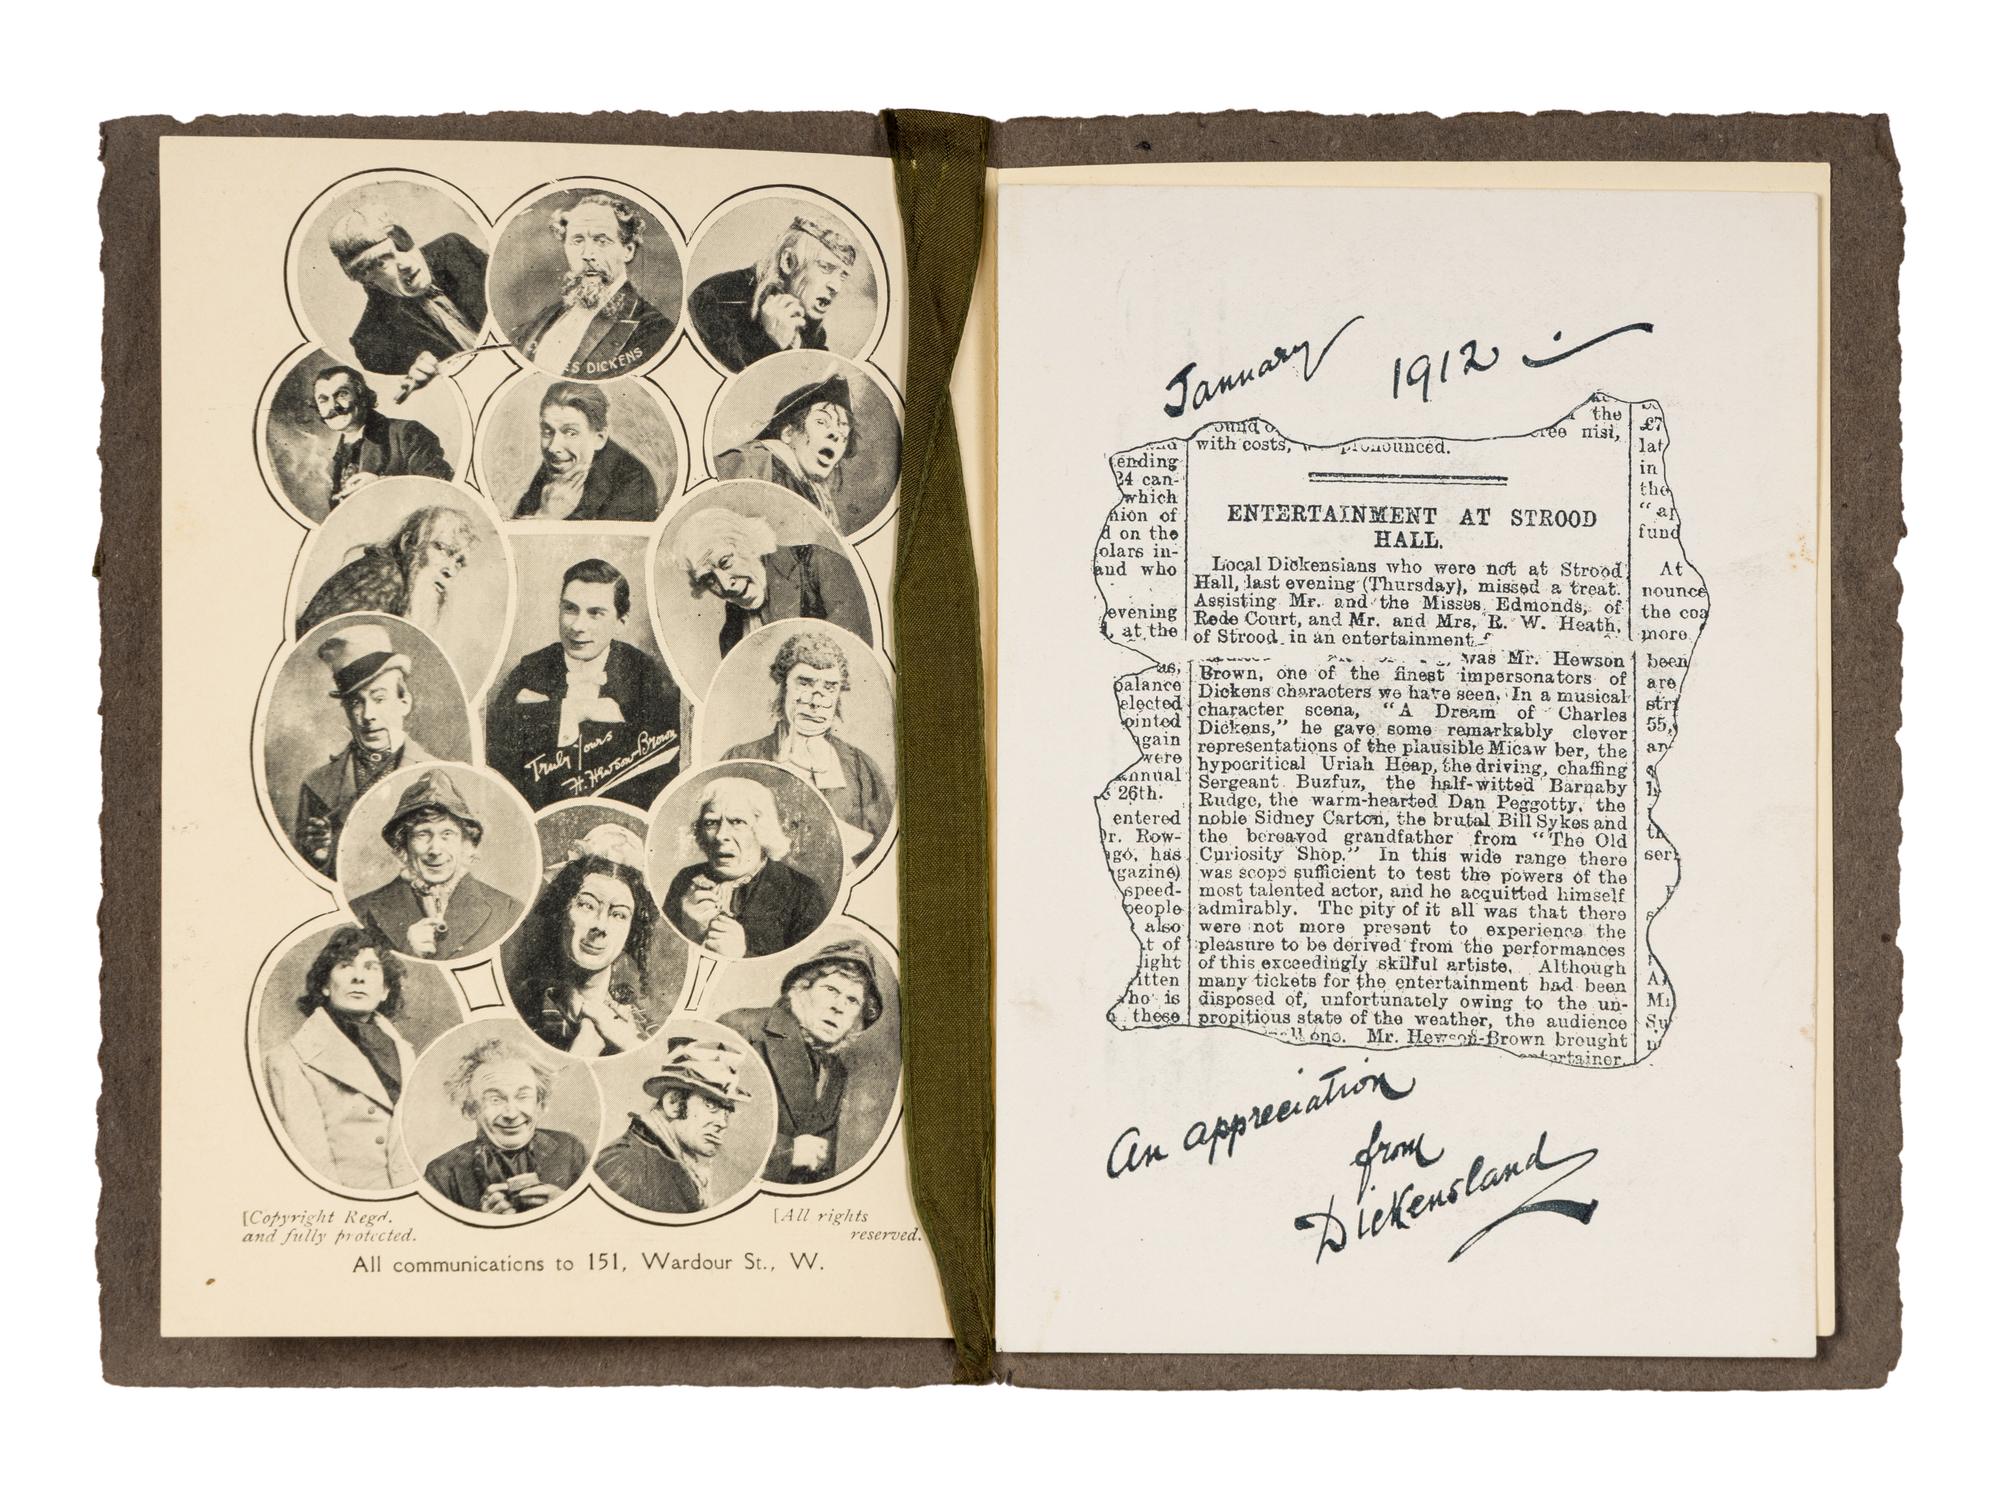 ES DICKENS
Truly Yours
H. Hewson-Brown
[Copyright Regd.
and fully protected.
[All rights
reserved.
All communications to 151, Wardour St., W.
January 1912
with costs, pronounced.
the
nisi,
ENTERTAINMENT AT STROOD
HALL.
Local Dickensians who were not at Strood
Hall, last evening (Thursday), missed a treat.
Assisting Mr. and the Misses Edmonds, of
Rede Court, and Mr. and Mrs. R. W. Heath,
of Strood in an entertainment
was Mr. Hewson
Brown, one of the finest impersonators of
Dickens characters we have seen. In a musical
character scena, "A Dream of Charles
Dickens," he gave some remarkably clever
representations of the plausible Micaw ber, the
hypocritical Uriah Heap, the driving, chaffing
Sergeant Buzfuz, the half-witted Barnaby
Rudge, the warm-hearted Dan Peggotty, the
noble Sidney Carton, the brutal Bill Sykes and
the bereaved grandfather from "The Old
Curiosity Shop." In this wide range there
was scope sufficient to test the powers of the
most talented actor, and he acquitted himself
admirably. The pity of it all was that there
were not more present to experience the
pleasure to be derived from the performances
of this exceedingly skilful artiste. Although
many tickets for the entertainment had been
disposed of, unfortunately owing to the un-
propitious state of the weather, the audience
one. Mr. Hewson-Brown brought
entertainer.
ending
24 can-
which
nion of
d on the
olars in-
and who
evening
at the
as,
palance
elected
ointed
gain
were
annual
26th.
entered
r. Row-
go, has
gazine)
speed-
people
also
t of
light
itten
ho is
these
£7
lat
in
the
"ap
fund
At
nounce
the coa
more
been
are
stri
55,
an
seri
An appreciation
from
Dickensland